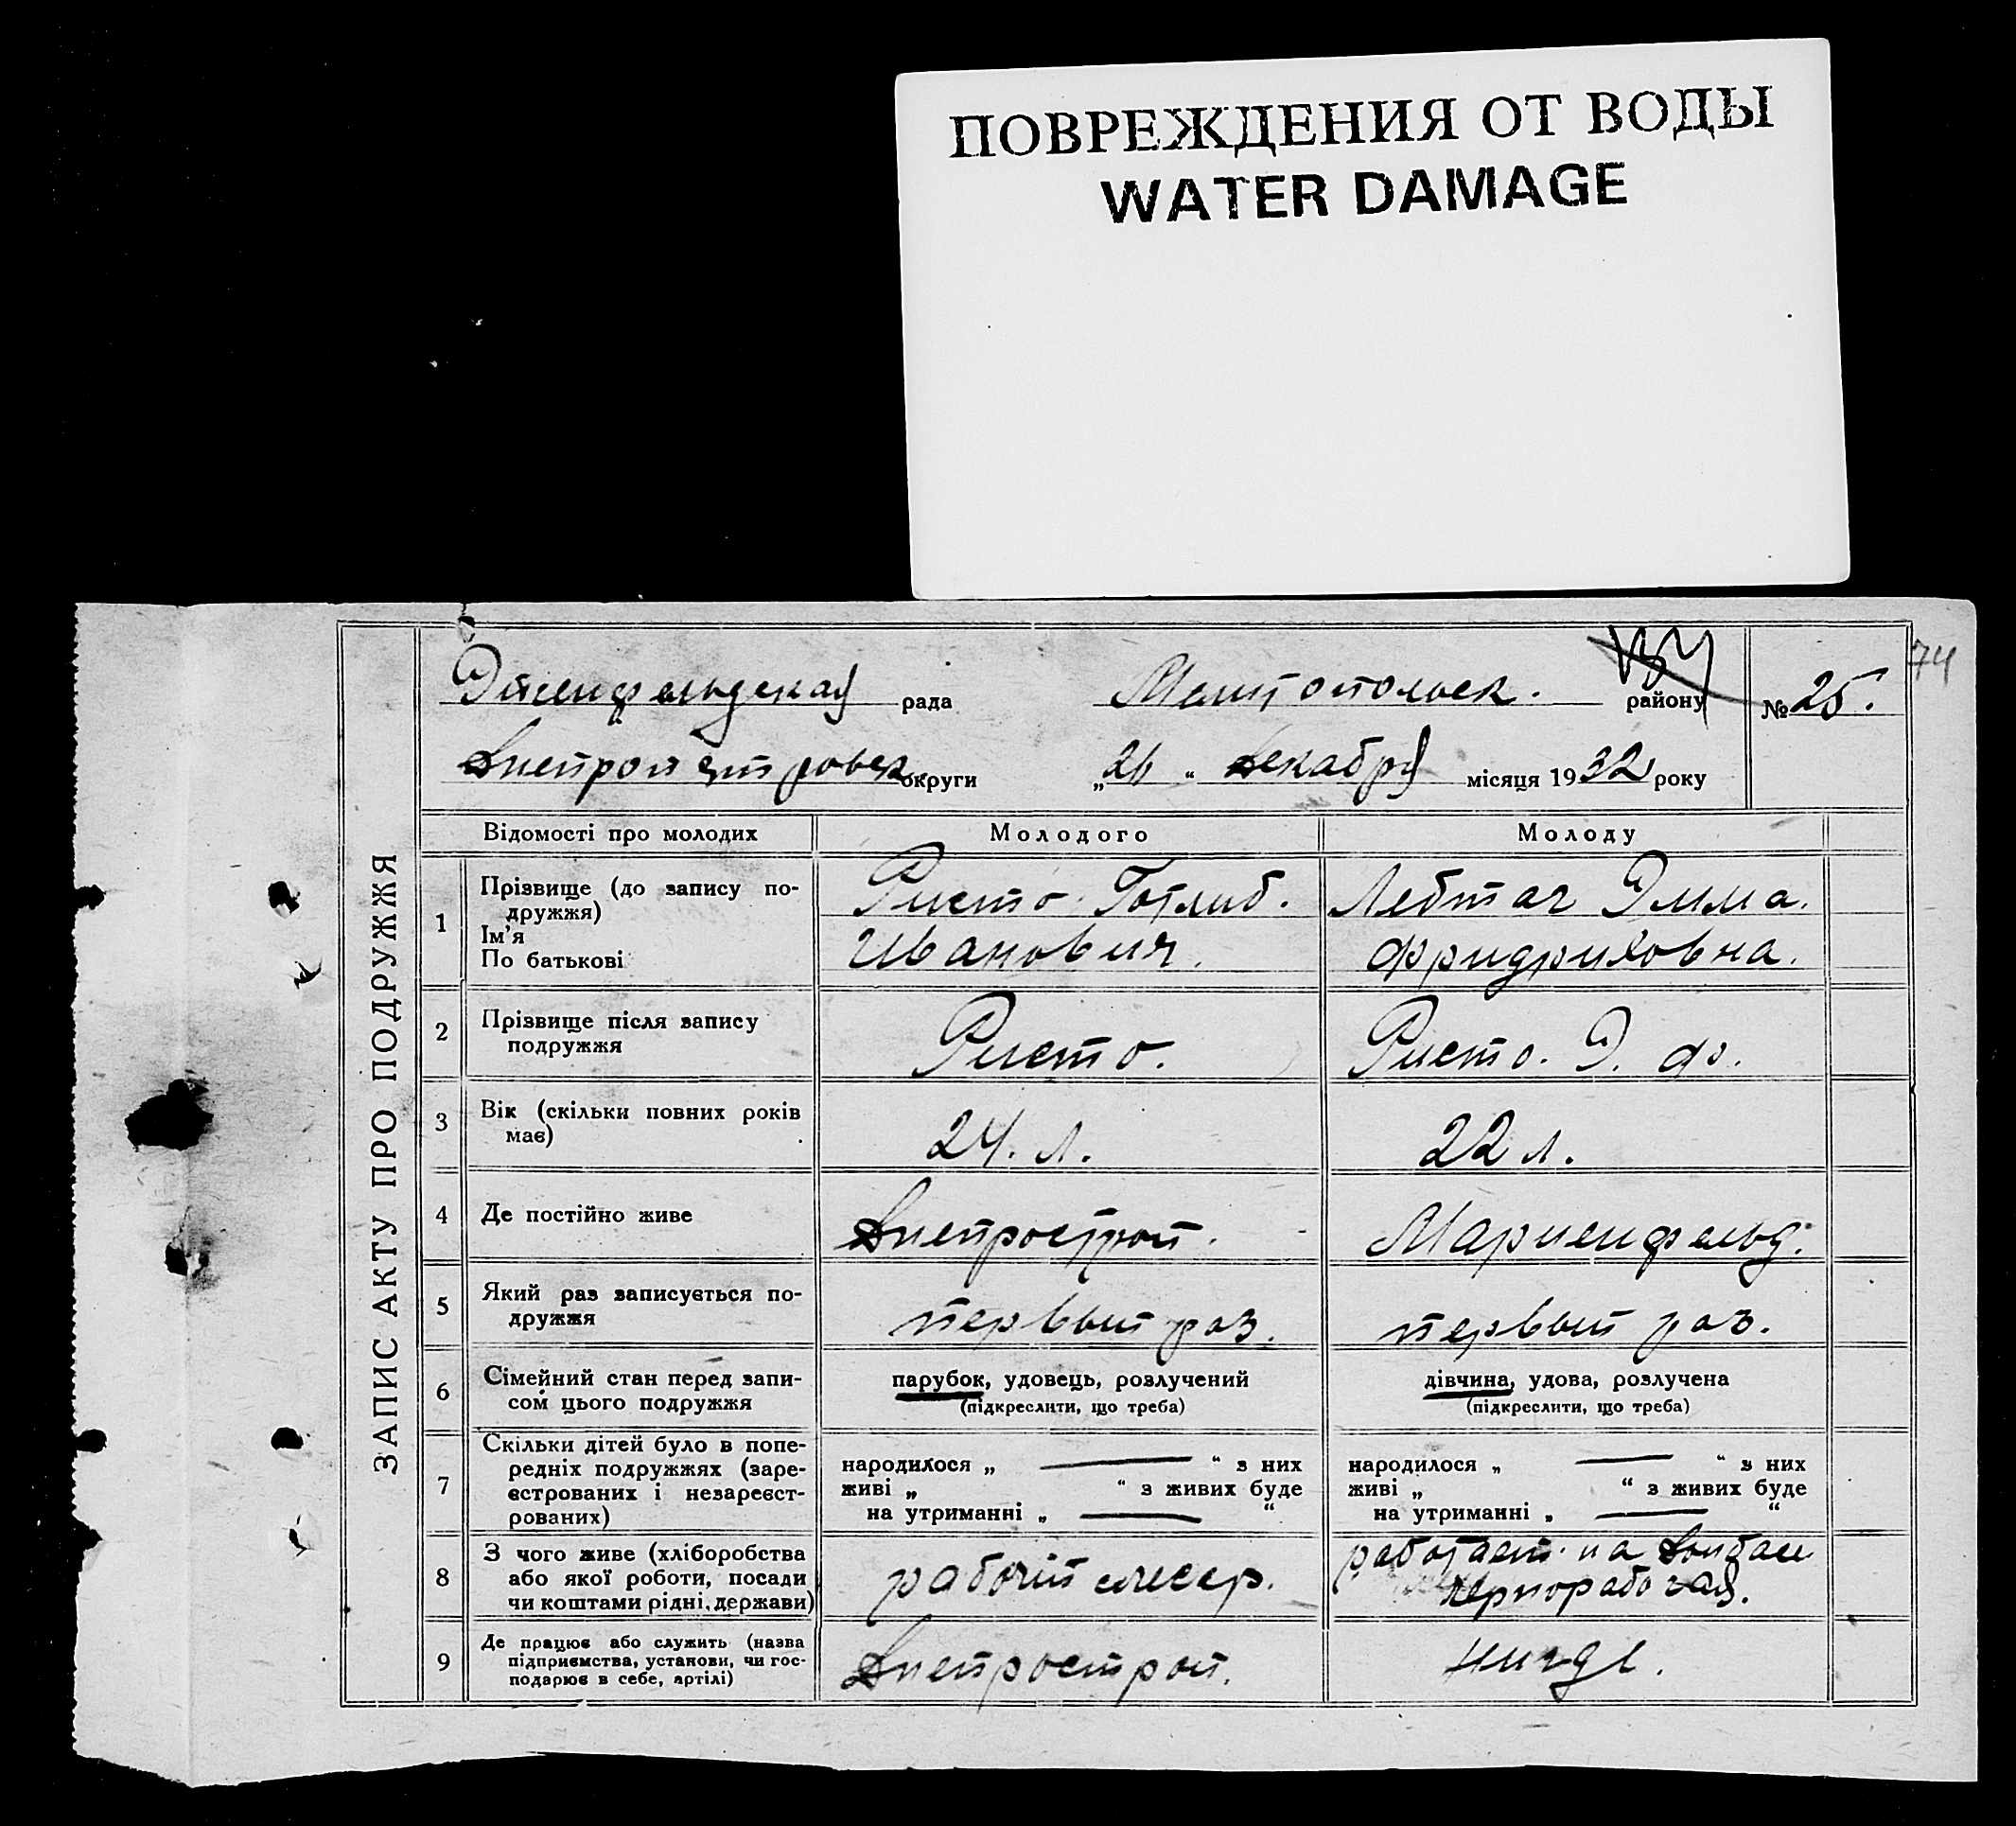 ПОВРЕЖДЕНИЯ ОТ ВОДЫ
WATER DAMAGE
74
ЗАПИС АКТУ ПРО ПОДРУЖЖЯ
рада района № 25.
Днепропетровск. округи „26“ декабря місяця 1932 року
Відомості про молодих Молодого Молоду
1 Прізвище (до запису по-
дружжя)
Ім'я
По батькові
Ристо Готлиб.
Иванович.
Лебтаг Эмма.
Фридриховна.
2 Прізвище після запису
подружжя
Ристо. Ристо. Э. Ф.
3 Вік (скільки повних років
має)
24. л. 22 л.
4 Де постійно живе Днепрострой. Мариенфельд.
5 Який раз записується по-
дружжя
первый раз. первый раз.
6 Сімейний стан перед запи-
сом цього подружжя
парубок, удовець, розлучений
(підкреслити, що треба)
дівчина, удова, розлучена
(підкреслити, що треба)
7 Скільки дітей було в попе-
редніх подружжях (заре-
єстрованих і незареєст-
рованих)
народилося „ — “ з них
живі „ “ з живих буде
на утриманні „ — “
народилося „ — “ з них
живі „ “ з живих буде
на утриманні „ — “
8 З чого живе (хліборобства
або якої роботи, посади
чи коштами рідні, держави)
рабочий слесар.
работает на Донбасе
чернорабочая.
9 Де працює або служить (назва
підприємства, установи, чи гос-
подарює в себе, артілі)
Днепрострой. нигде.